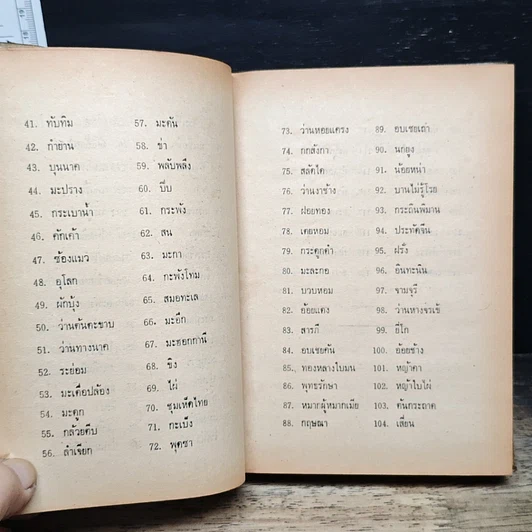 41. ทับทิม
42. กำยาน
43. บุนนาค
44. มะปราง
45. กระเบาน้ำ
46. คัดเค้า
47. ช้องแมว
48. อุโลก
49. ผักบุ้ง
50. ว่านค้นตะขาบ
51. ว่านทางนาค
52. ระย่อม
53. มะเดื่อปล้อง
54. มะตูก
55. กล้วยตีบ
56. ลำเจียก
57. มะดัน
58. ข่า
59. พลับพลึง
60. บีบ
61. กระพัง
62. สน
63. มะกา
64. กะพังโหม
65. สมอทะเล
66. มะอึก
67. มะฮอกกานี
68. ขิง
69. ไผ่
70. ชุมเห็ดไทย
71. กะเบียง
72. พุดซา
73. ว่านหอยแครง
74. กกลังกา
75. สลัดได
76. ว่านงาช้าง
77. ฝอยทอง
78. เตยหอม
79. กระดูกดำ
80. มะละกอ
81. บวบหอม
82. อ้อยแดง
83. สารภี
84. อบเชยต้น
85. ทองหลางใบมน
86. พุทธรักษา
87. หมากผู้หมากเมีย
88. กฤษณา
89. อบเชยเถา
90. นกยูง
91. น้อยหน่า
92. บานไม่รู้โรย
93. กระถินพิมาน
94. ประทัดจีน
95. ฝรั่ง
96. อินทะนิน
97. จามจุรี
98. ว่านหางจรเข้
99. ยี่โถ
100. อ้อยช้าง
101. หญ้าคา
102. หญ้าใบไผ่
103. ต้นกระถาด
104. เลี่ยน